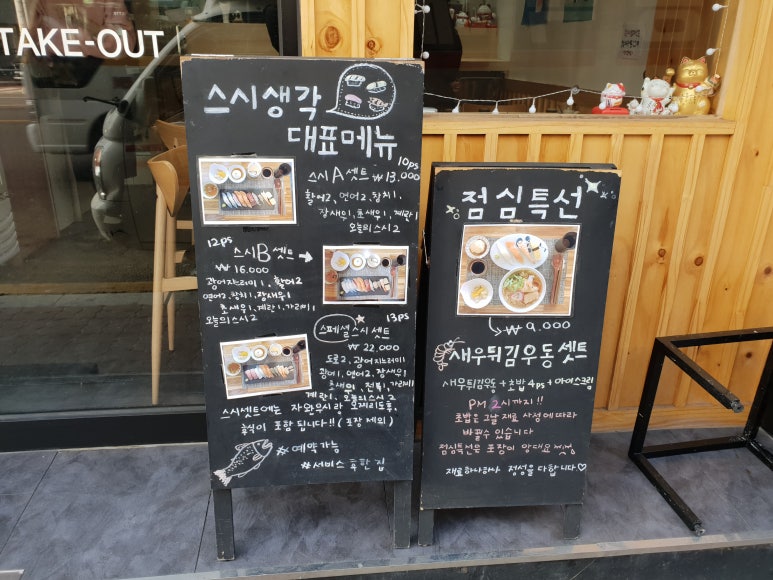 TAKE-OUT
스시생각
대표메뉴
10ps
스시A셋트 ₩13,000
활어2, 연어2, 참치1,
장새우1, 초새우1, 계란1
오늘의스시2
12ps
스시B셋트
₩16,000
광어지느러미1, 활어2
연어2, 참치1, 장새우1
초새우1, 계란1, 가리비1
오늘의스시2
13ps
스페셜스시셋트
₩22,000
도로2, 광어지느러미
광어1, 연어2, 장새우1
초새우1, 전복1, 가리비
계란1, 오늘의스시2
스시셋트에는 자완무시랑
후식이 포함 됩니다!! (포장 제외)
#예약가능
#서비스 후한집
점심특선
₩9,000
새우튀김우동셋트
새우튀김우동 + 초밥4ps + 아이스크림
PM 2시까지!!
초밥은 그날 재료 사정에따라
바뀔수 있습니다
점심특선은 포장이 안돼요
재료하나하나 정성을 다합니다♡